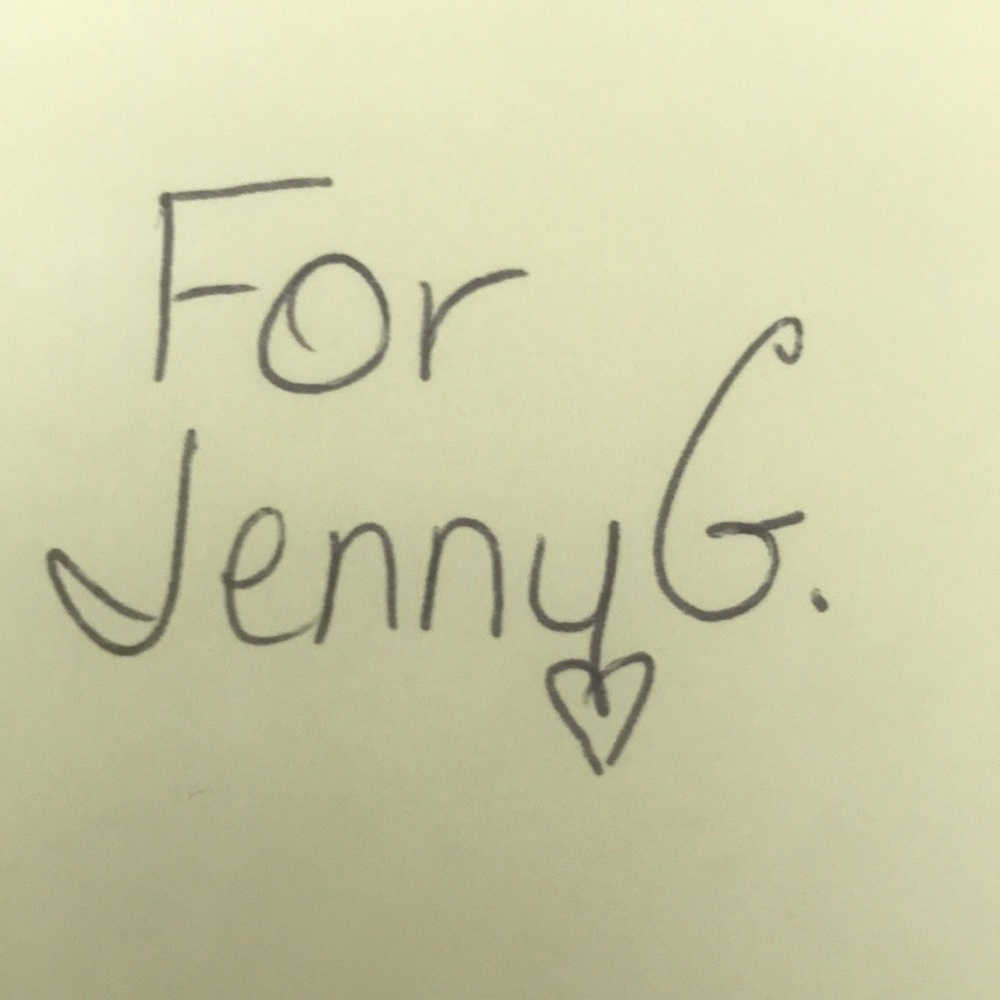 For
Jenny G.